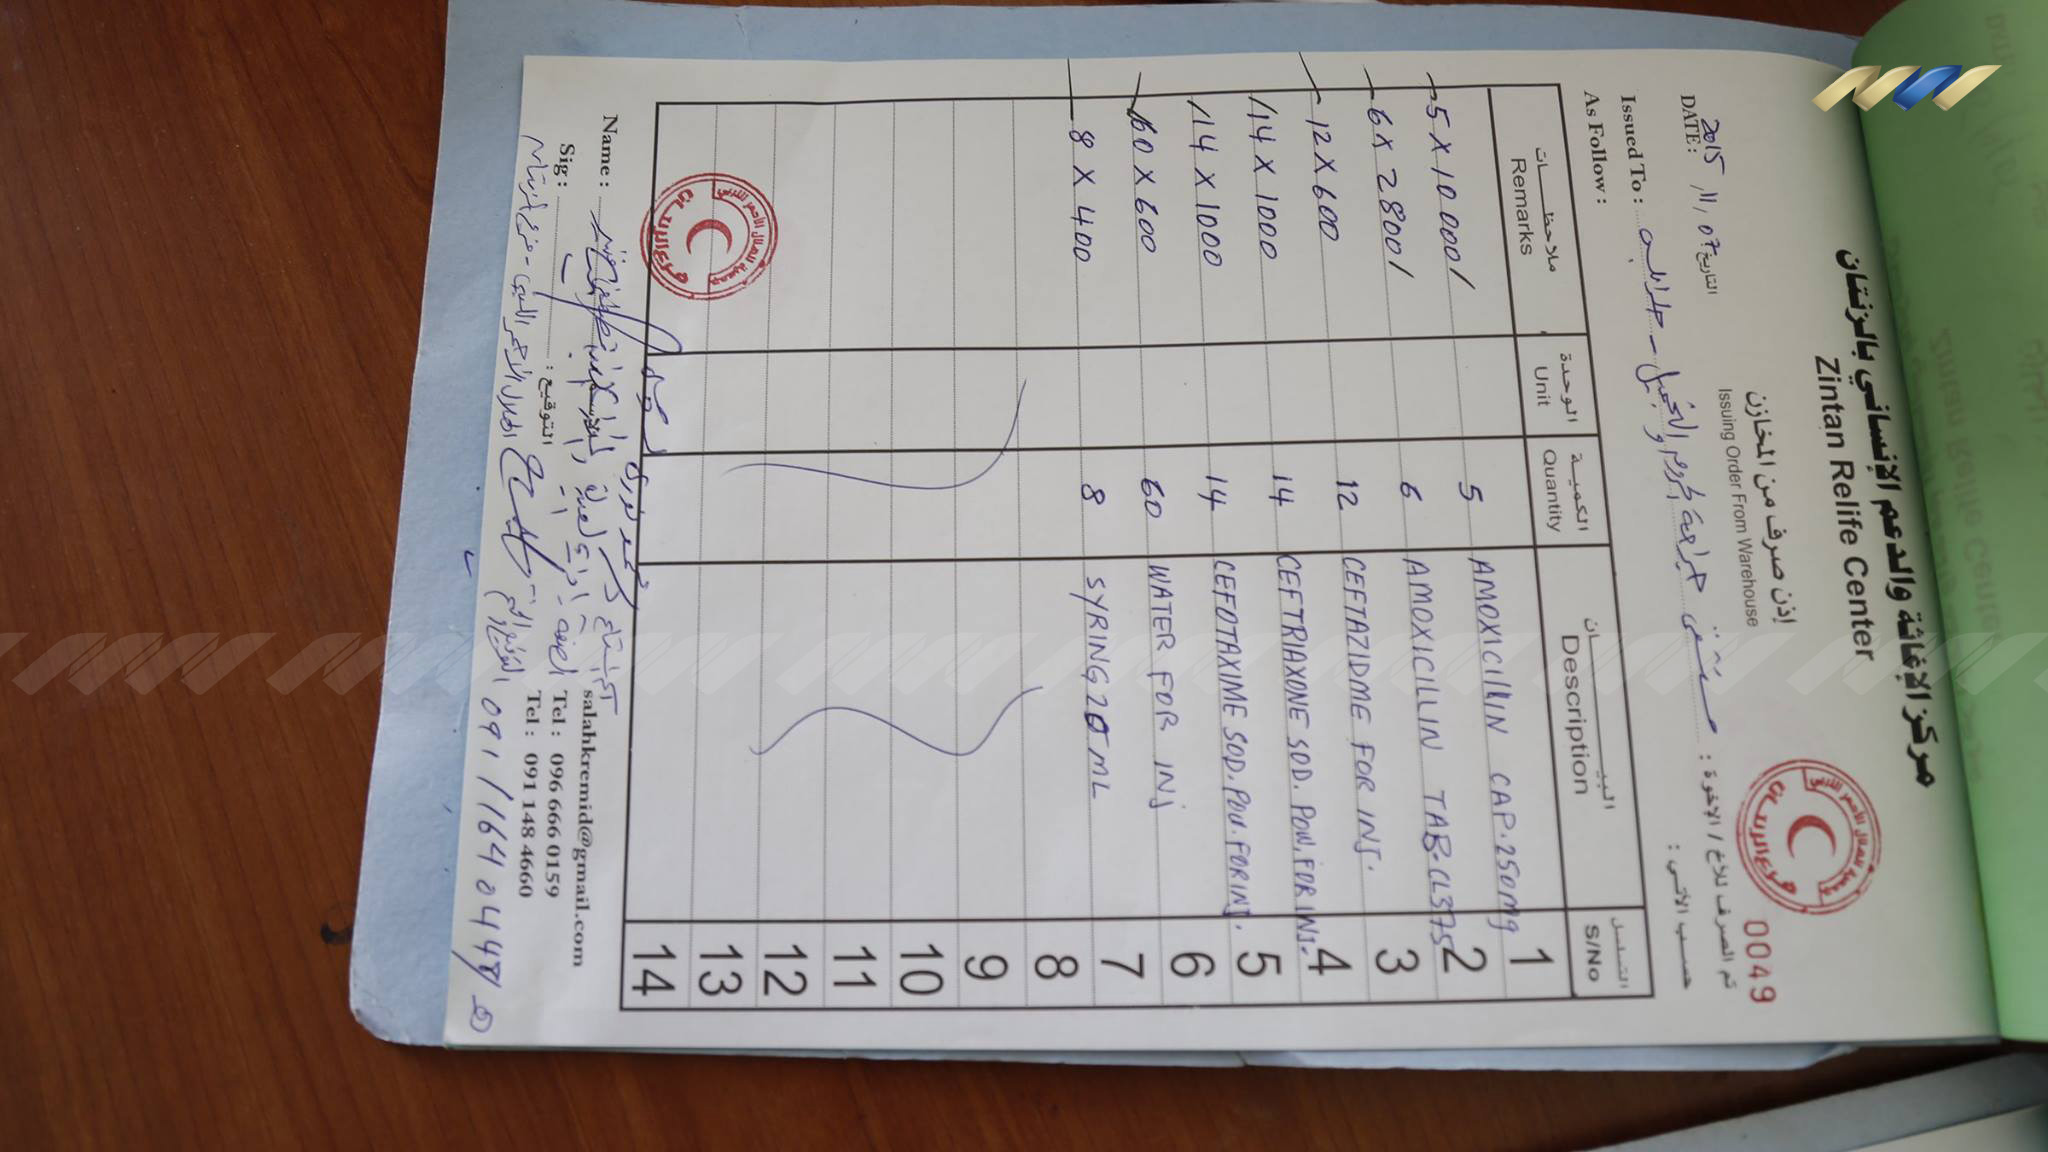 مركز الإغاثة والدعم الإنساني بالزنتان
Zintan Relife Center
إذن صرف من المخازن
Issuing Order From Warehouse
0049
التاريخ 2015 / 11 / 07
DATE :
تم الصرف للأخ / الإخوة : مستشفى جراحة الحروم والتجميل - طرابلس
Issued To :
حسب الآتي :
As Follow :
التسلسل البيــــــان الكمية الوحدة ملاحظـــات
S/No Description Quantity Unit Remarks
1 AMOXICILLIN CAP. 250mg 5 5 X 10 000/
2 AMOXICILLIN TAB. CL375 6 6 X 2800/
3 CEFTAZIDME FOR INJ. 12 12 X 600
4 CEFTRIAXONE SOD. POW. FOR INJ. 14 14 X 1000
5 CEFOTAXIME SOD. POW. FOR INJ. 14 14 X 1000
6 WATER FOR INJ 60 60 X 600
7 SYRING 20 ML 8 8 X 400
8
9
10
11
12
13
14
Name :
salahkremid@gmail.com
Sig : التوقيع :
Tel : 096 666 0159
Tel : 091 148 4660
الهلال الأحمر الليبي - فرع الزنتان
091/164 0448